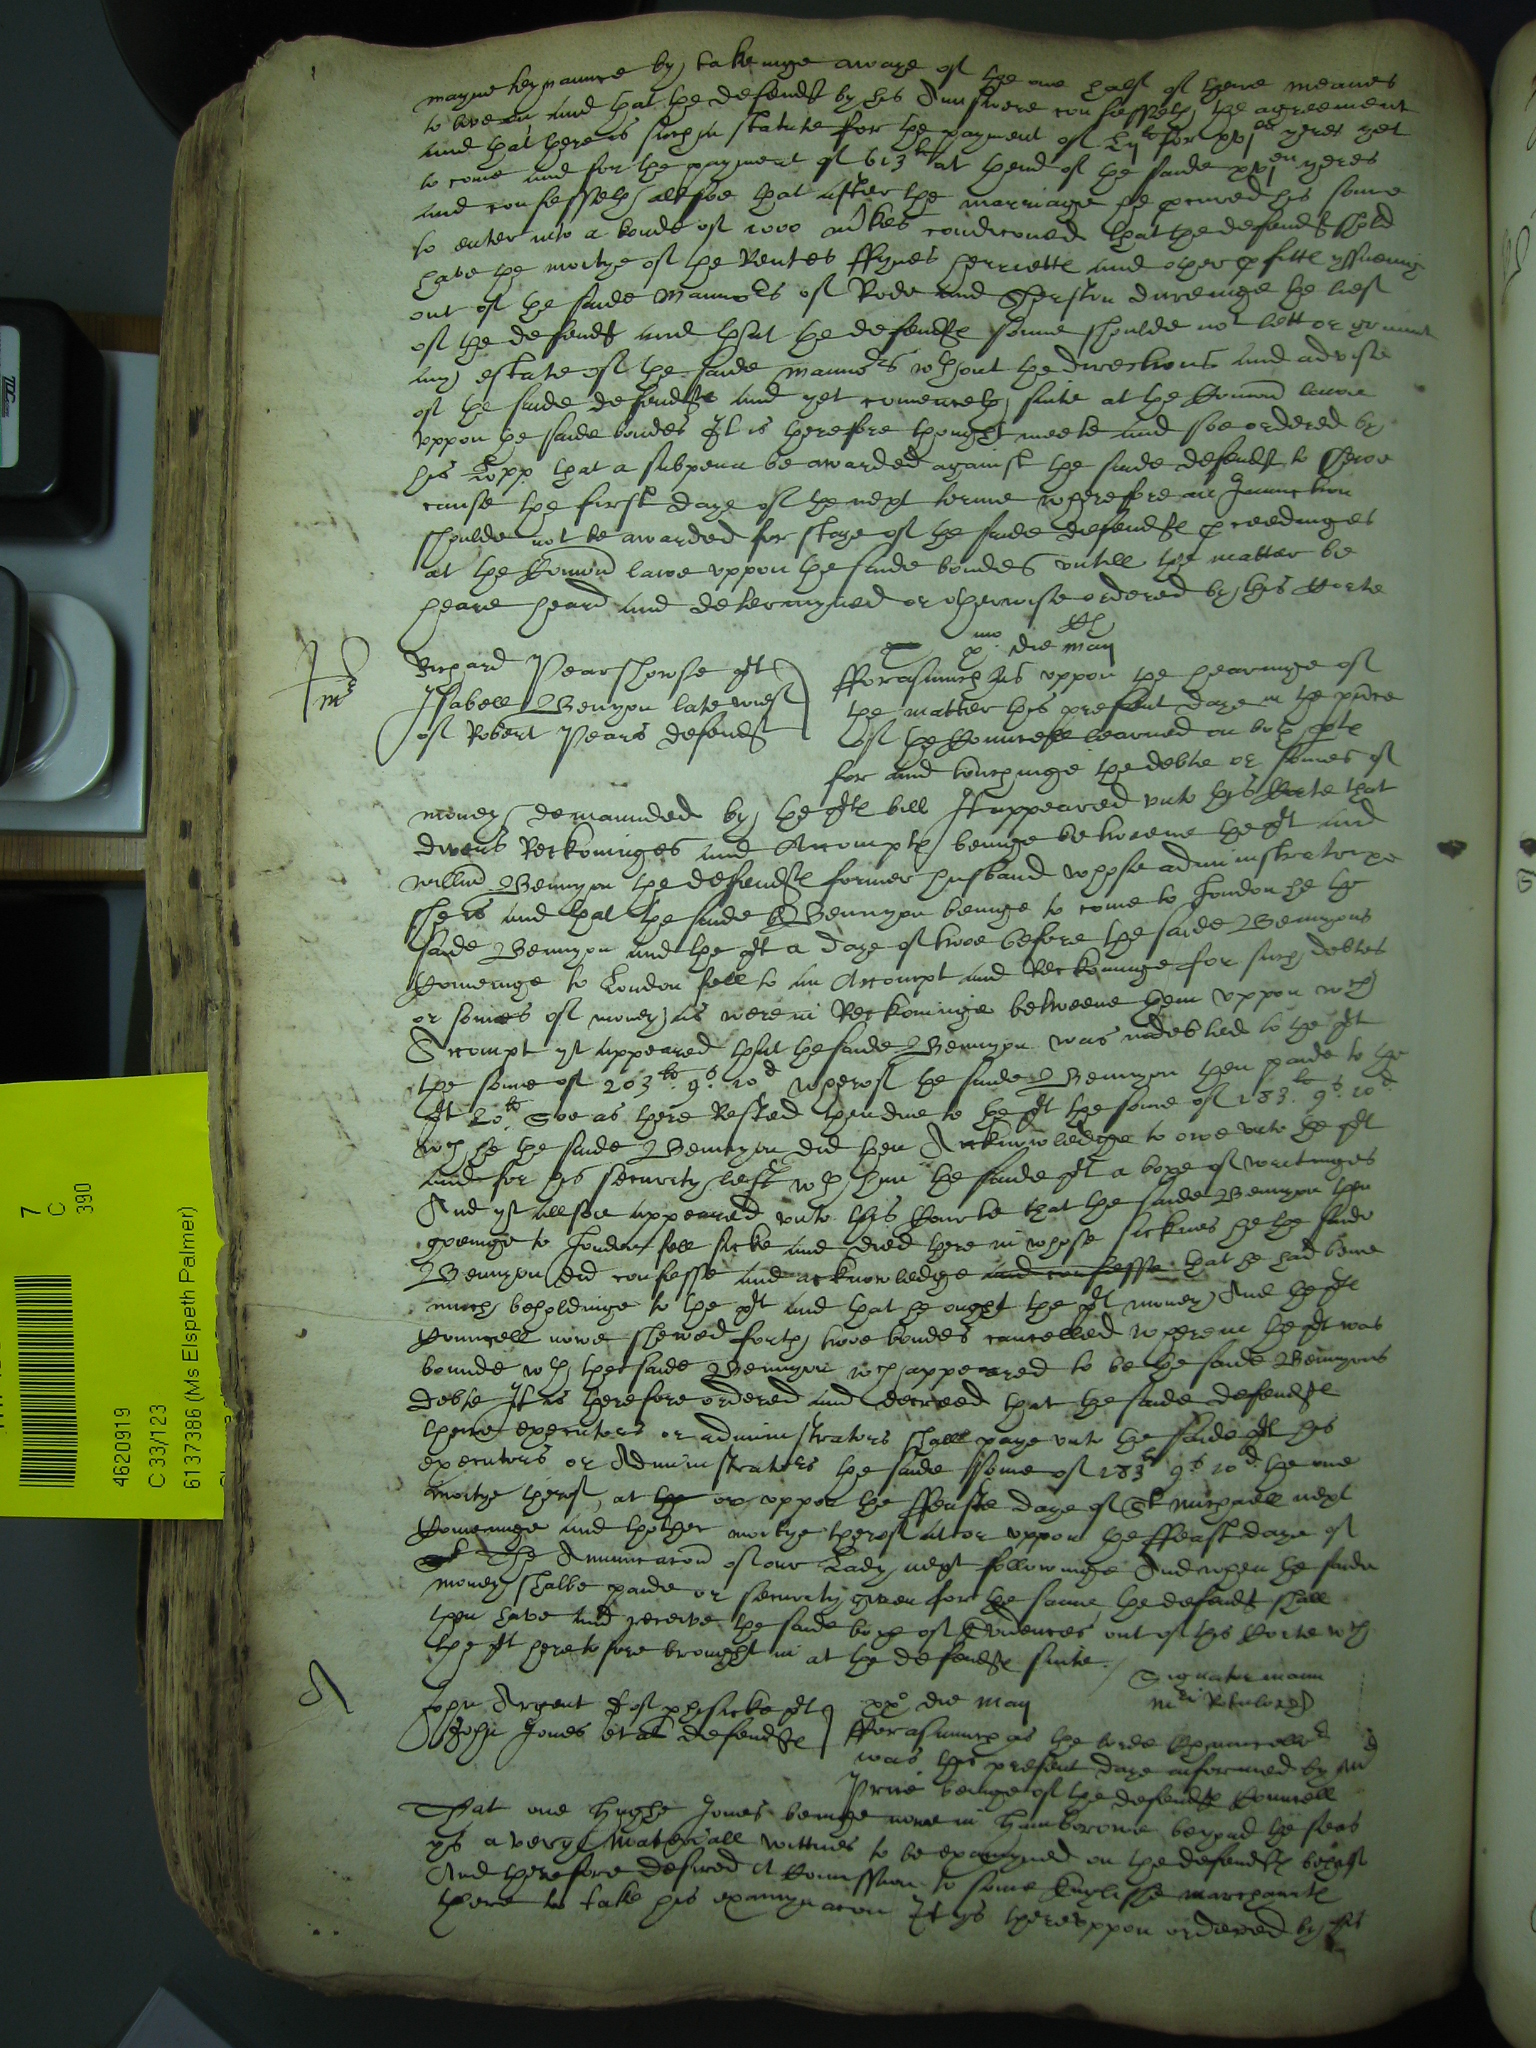 mayneteynaunce by takeinge awaye of the one halfe of there meanes
to live on and that the defendt by his Aunswere confesseth the agreement
and that there is such a statute for the payment of for xxj en yeres yet
to come and for the payment of 613 li at thend of the saide xxj en yeres
and confesseth allsoe that after the marriage he procured his sonne
to enter into a bonde of 1000 mkes condiconed that the defendt shold
have the moitye of the Rentes ffynes herriette and other pfitte yssueinge
out of the saide Mannors of Rode and Sherston dureinge the lief
of the defendt and that the defendte sonne shoulde not lett or graunt
any estate of the saide mannors wthout the directions and advise
of the saide defendte and yet comenceth suite at the Comon lawe
uppon the saide bondes It is therefore thought meete and soe ordered by
his Lopp that a subpena be awarded against the saide defendt to shewe
cause the first daye of the next terme wherefore an Iniunction
shoulde not be awarded for staye of the saide defendte pceedinges
at the Comon lawe uppon the saide bondes untill the matter be
heare heard and determyned or otherwise ordered by this Corte
xmo die May
Richard Pearshowse plt
Isabell Bennyon late wief
of Robert Pears defendt
fforasmuch as uppon the hearinge of
the matter this present daye in the pnce
of the Councell learned on both pte
for and touchinge the debte or somes of
money demaunded by the plte bill It appeared unto this Corte that
divers Reckoninges and Accompte beinge betweene the plt and
willm Bennyon the defendte former husband whose administratrixe
she is and that the saide Bennyon beinge to come to London he the
saide Bennyon and the plt a daye of twoe before the saide Bennyons
Comeinge to London fell to an Accompt and Reckoninge for such debtes
or somes of money as were in Reckoninge betweene them uppon wch
Accompt yt appeared that the saide Bennyon was indebted to the plt
the some of 203 li. 9 s. 10 d wherof the saide Bennyon then paide to the
plt 20 li. Soe as there Rested then due to the plt the some of 183 li. 9 s. 10 d
wch he the saide Bennyon did then Acknowledge to owe unto the plt
and for his security left wth him the saide plt a boxe of writinges
And yt allsoe appeared unto this Courte that the saide Bennyon then
goeinge to London fell sicke and died there in whose sicknes he the saide
Bennyon did confesse and acknowledge and confesse that he had bene
much beholdinge to the plt and that he ought the plt money And the plte
Councell nowe shewed forth twoe bondes cancelled wherein the plt was
bounde wth the saide Bennyon wch appeared to be the saide Bennyons
debte It is therefore ordered and decreed that the saide defendte
there executors or administrators shall paye unto the saide plt his
executors or Administrators the saide some of 183 li 9 s 10 d the one
moitye therof at the or uppon the ffeaste daye of St Michaell next
Comeinge and thother moitye therof at or uppon the ffeast daye of
St The Annuncacon of our Lady next followinge And when the saide
money shalbe paide or security given for the same the defendt shall
then have and receive the saide boxe of Evidences out of this Corte wch
the plt heretofore brought in at the defendte suite.
Signator manu
mri Rotulorum
John Argent of phisicke plt
John Jones et al defendte
xxo die May
fforasmuch as the lorde Chauncellor
was this present daye informed by Mr
Price beinge of the defendte Councell
That one Hughe Jones beinge nowe in Hamborowe beyond the seas
ys a very Materiall wittnes to be examyned on the defendte behalf
And therefore desired A Comission to some Englishe marchante
there to take his examynacon It ys thereuppon ordered by his
7
C
390
4620919
C 33/123
6137386 (Ms Elspeth Palmer)
TDC